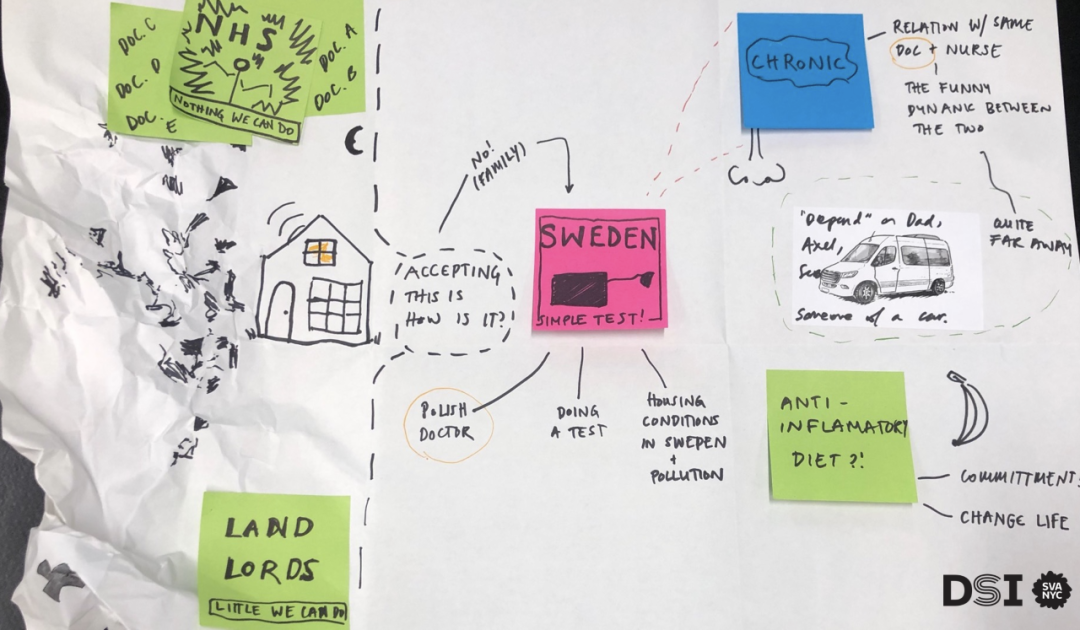 DOC. C
DOC. D
DOC. E
NHS
NOTHING WE CAN DO
DOC. A
DOC. B
NO!
(FAMILY)
ACCEPTING
THIS IS
HOW IS IT?
SWEDEN
SIMPLE TEST!
POLISH
DOCTOR
DOING
A TEST
HOUSING
CONDITIONS
IN SWEDEN
+
POLLUTION
LAND
LORDS
LITTLE WE CAN DO
CHRONIC
RELATION W/ SAME
DOC + NURSE
THE FUNNY
DYNAMIC BETWEEN
THE TWO
QUITE
FAR AWAY
"Depend" on Dad,
Axel,
Someone w/ a car.
ANTI-
INFLAMATORY
DIET?!
COMMITTMENT
CHANGE LIFE
DSI
SVA
NYC